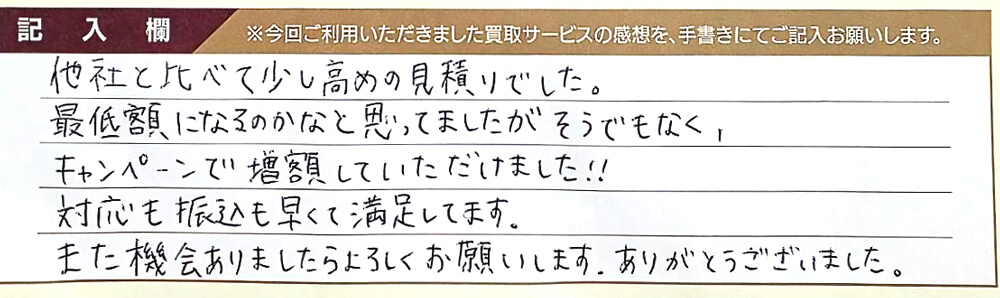 記入欄
※今回ご利用いただきました買取サービスの感想を、手書きにてご記入お願いします。
他社と比べて少し高めの見積りでした。
最低額になるのかなと思ってましたがそうでもなく,
キャンペーンで増額していただけました!!
対応も振込も早くて満足してます.
また機会ありましたらよろしくお願いします.ありがとうございました。